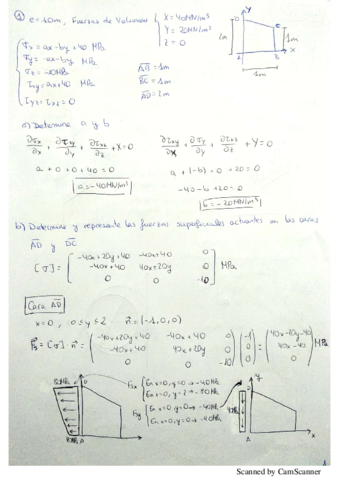 ① e=10m, Fuerzas de Volumen { X=40MN/m³
Y=20MN/m³
Z=0
σx = ax-by+40 MPa
σy = -ax-by MPa
σz = -10MPa
τxy = ax+40 MPa
τyz = τxz = 0
AB = 1m
BC = 1m
AD = 2m
y
D
C
2m
1m
A
B
x
1m
a) Determine a y b
∂σx/∂x + ∂τxy/∂y + ∂τxz/∂z + X = 0
∂τxy/∂x + ∂σy/∂y + ∂τyz/∂z + Y = 0
a + 0 + 0 + 40 = 0
a + (-b) + 0 + 20 = 0
a = -40MN/m³
-40 - b + 20 = 0
b = -20MN/m³
b) Determine y represente las fuerzas superficiales actuantes en las caras
AD y DC
[σ] = ( -40x+20y+40 -40x+40 0
-40x+40 40x+20y 0
0 0 -10 ) MPa
Cara AD
x=0, 0≤y≤2 n = (-1,0,0)
= [σ]·n = ( -40x+20y+40 -40x+40 0
-40x+40 40x+20y 0
0 0 -10 ) ( -1
0
0 ) = ( 40x-20y-40
40x-40
0 ) MPa
En x=0, y=0 → -40MPa
En x=0, y=2 → -80MPa
En x=0, y=0 → -40MPa
En x=0, y=0 → -40MPa
40MPa
A
y
x
A
Scanned by CamScanner